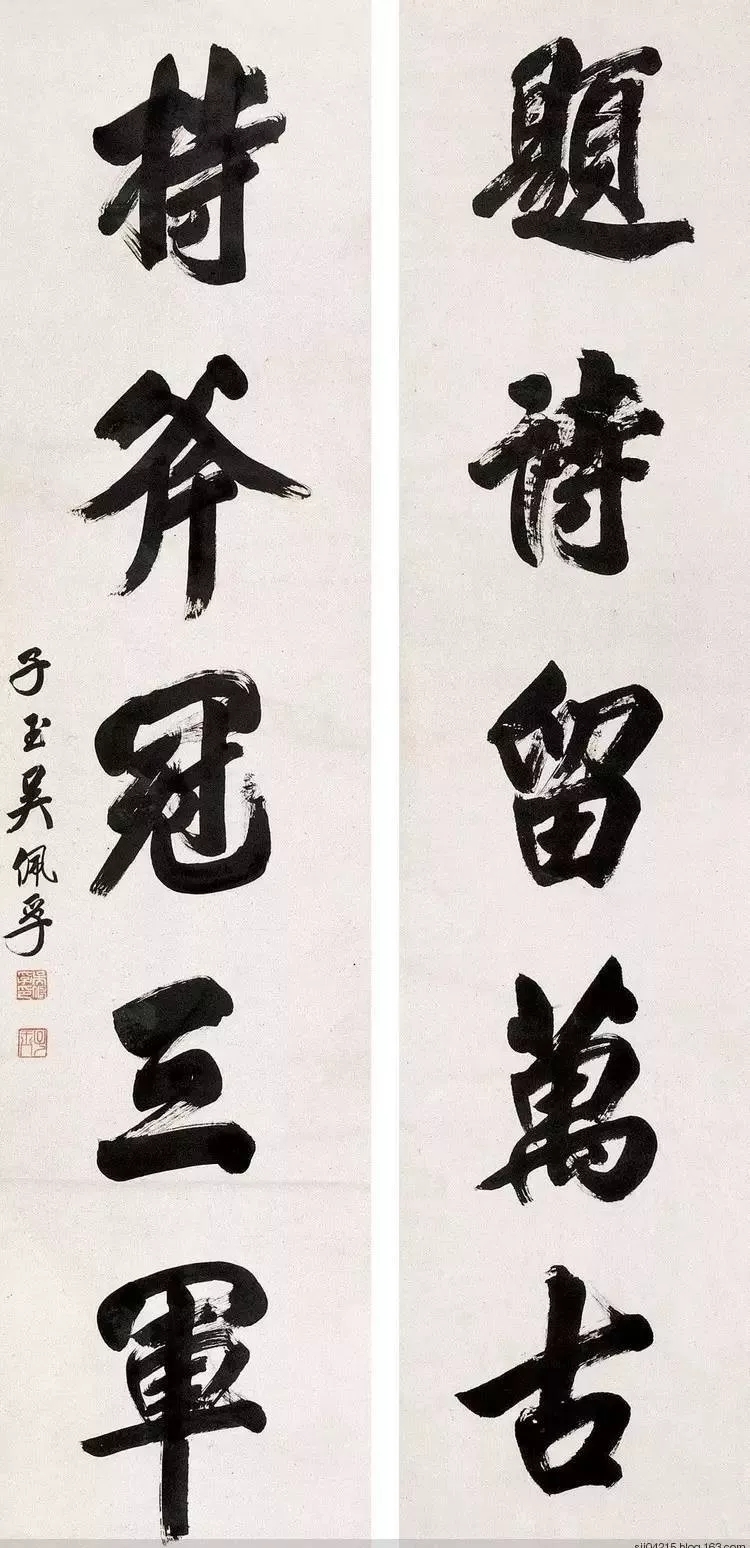 題詩留萬古
持斧冠三軍
子玉吳佩孚
sjj04215.blog.163.com